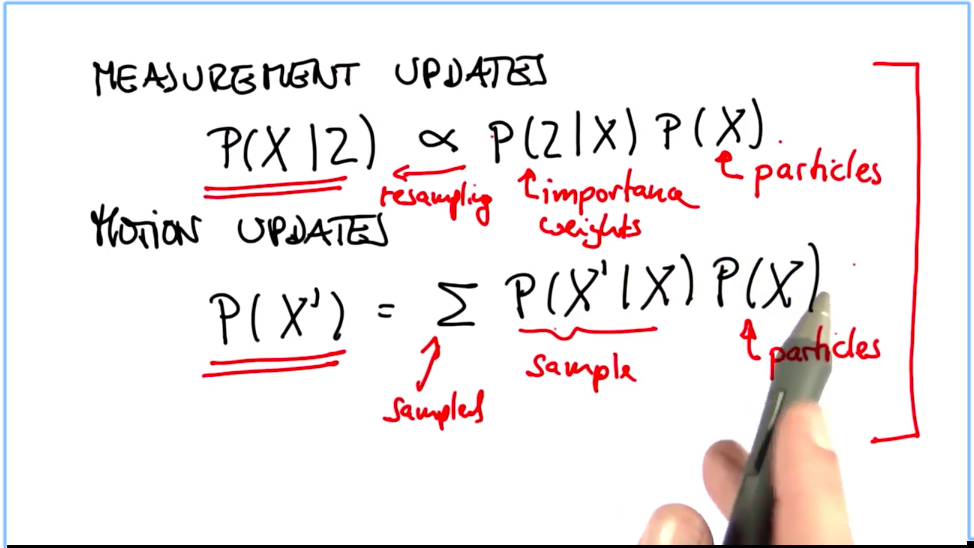 MEASUREMENT UPDATES
P(X|Z) ∝ P(Z|X) P(X)
resampling
importance
weights
particles
MOTION UPDATES
P(X') = Σ P(X'|X) P(X)
samples
sample
particles